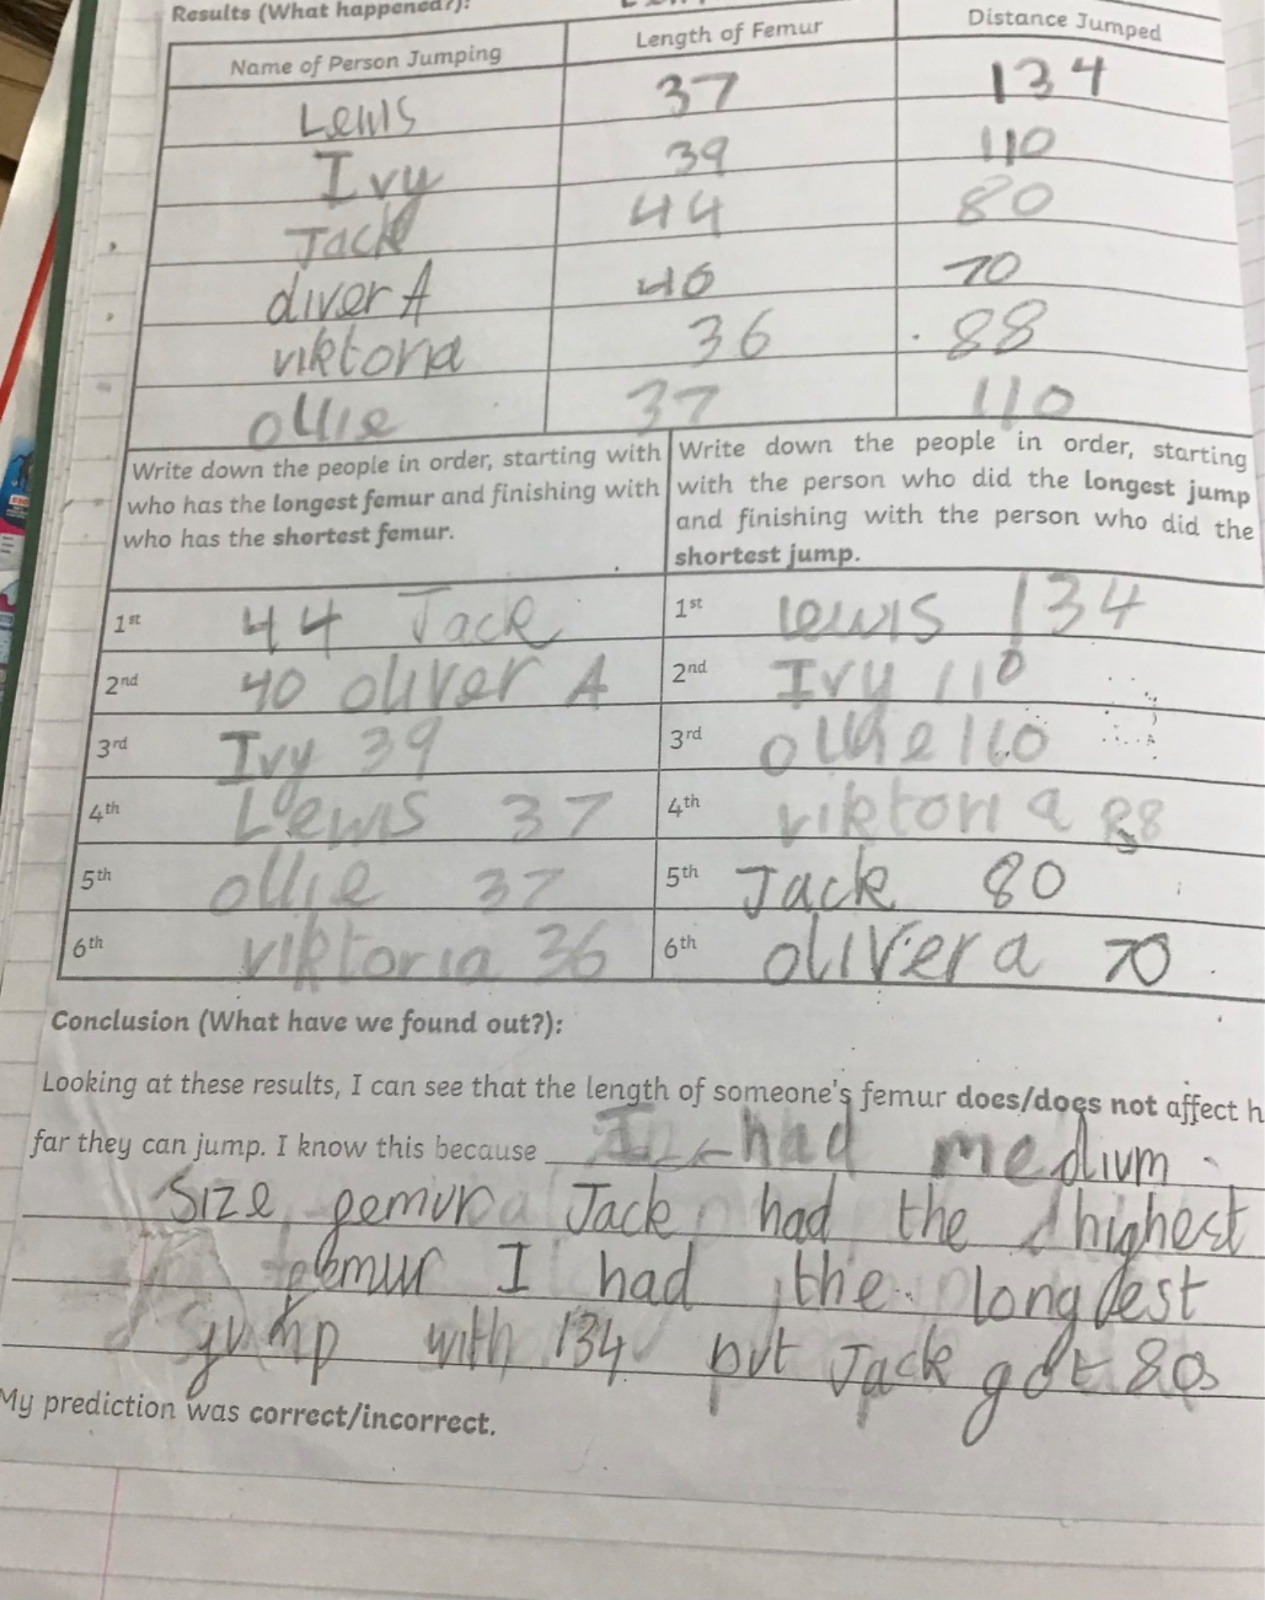 Results (What happened?):
Name of Person Jumping Length of Femur Distance Jumped
Lewis 37 134
Ivy 39 110
Jack 44 80
oliver A 40 70
viktoria 36 88
ollie 37 110
Write down the people in order, starting with
who has the longest femur and finishing with
who has the shortest femur.
Write down the people in order, starting
with the person who did the longest jump
and finishing with the person who did the
shortest jump.
1st 44 Jack 1st lewis 134
2nd 40 oliver A 2nd Ivy 110
3rd Ivy 39 3rd ollie 110
4th Lewis 37 4th viktoria 88
5th ollie 37 5th Jack 80
6th viktoria 36 6th oliver a 70
Conclusion (What have we found out?):
Looking at these results, I can see that the length of someone's femur does/does not affect h
far they can jump. I know this because I had medium
size gemur Jack had the highest
femur I had the longest
jump with 134 but Jack got 80
My prediction was correct/incorrect.